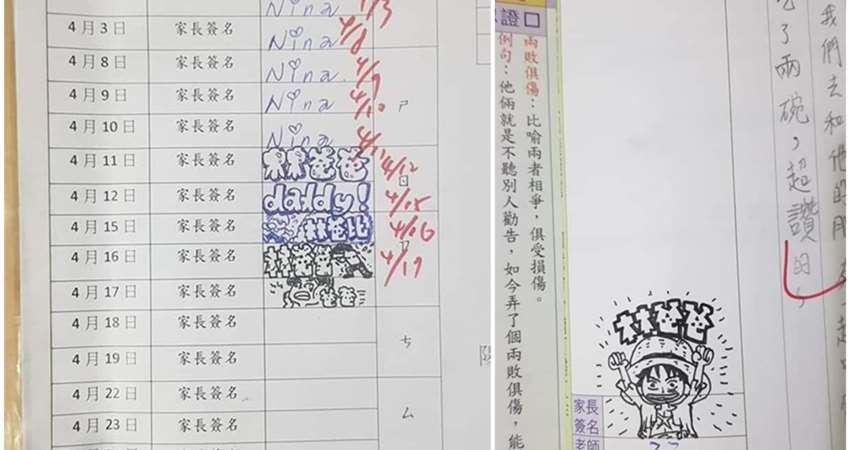 Nina 4/3
4月3日 家長簽名 Nina 4/8
4月8日 家長簽名 Nina 4/9
4月9日 家長簽名 Nina 4/10
4月10日 家長簽名 Nina 4/11
4月11日 家長簽名 林爸爸 4/12
4月12日 家長簽名 daddy! 4/15
4月15日 家長簽名 林老比 4/16
4月16日 家長簽名 林爸爸 4/17
4月17日 家長簽名 爸爸
4月18日 家長簽名
4月19日 家長簽名 ㄘ
4月22日 家長簽名
4月23日 家長簽名 ㄙ
我們去和他的
了兩碗，超讚的，
證口
兩敗俱傷：比喻兩者相爭，俱受損傷。
例句：他倆就是不聽別人勸告，如今弄了個兩敗俱傷，能
林爸爸
家長
簽名
老師